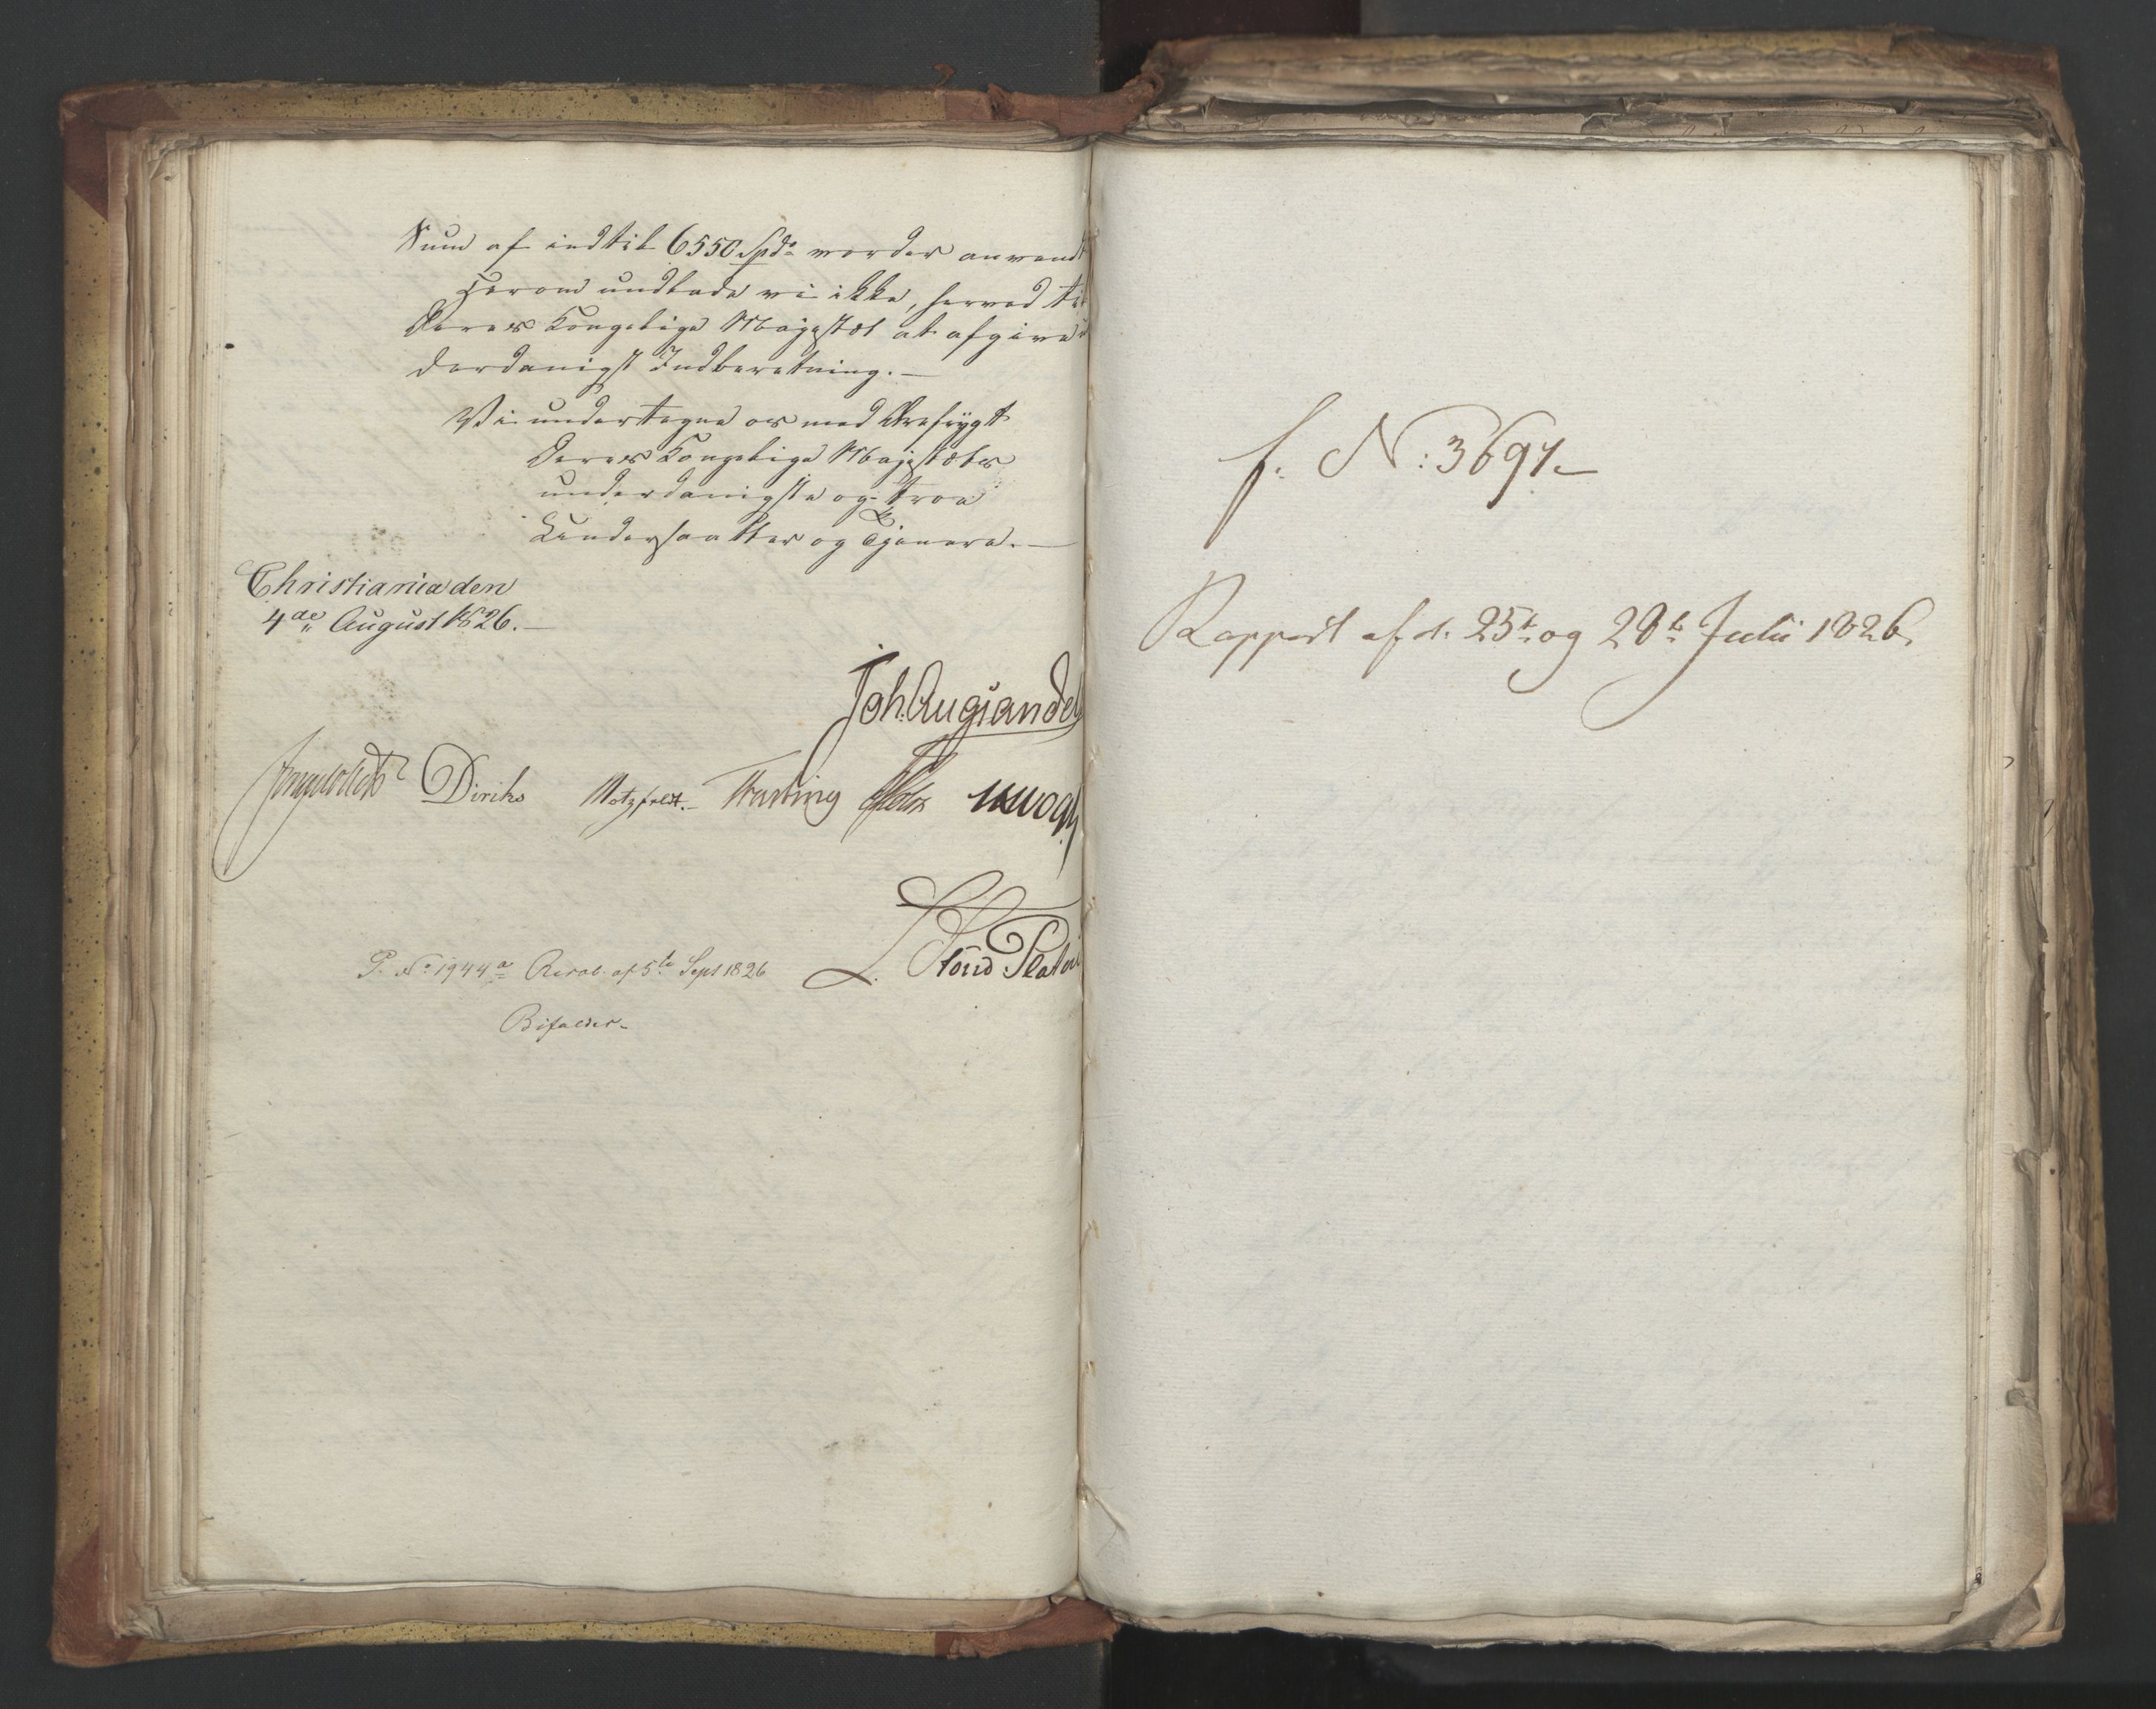 Sum af indtil 6550 Spd. vorder anvendt
Herom undlade vi ikke, herved til
Deres Kongelige Majestæt at afgive un
derdanigst Indberetning. —
Vi undertegne os med Ærefrygt
Deres Kongelige Majestæts
underdanigste og troe
Undersaatter og Tjenere. —
Christiania den
4de August 1826. —
Joh. Aug. Sandel
Diriks Motzfeldt. Treschow
L. Stoud Platou
P. No. 1944a Resol. af 5te Sept 1826
Bifaldes.
f. N: 3691.
Rapport af d. 25t. og 28t. Julii 1826.